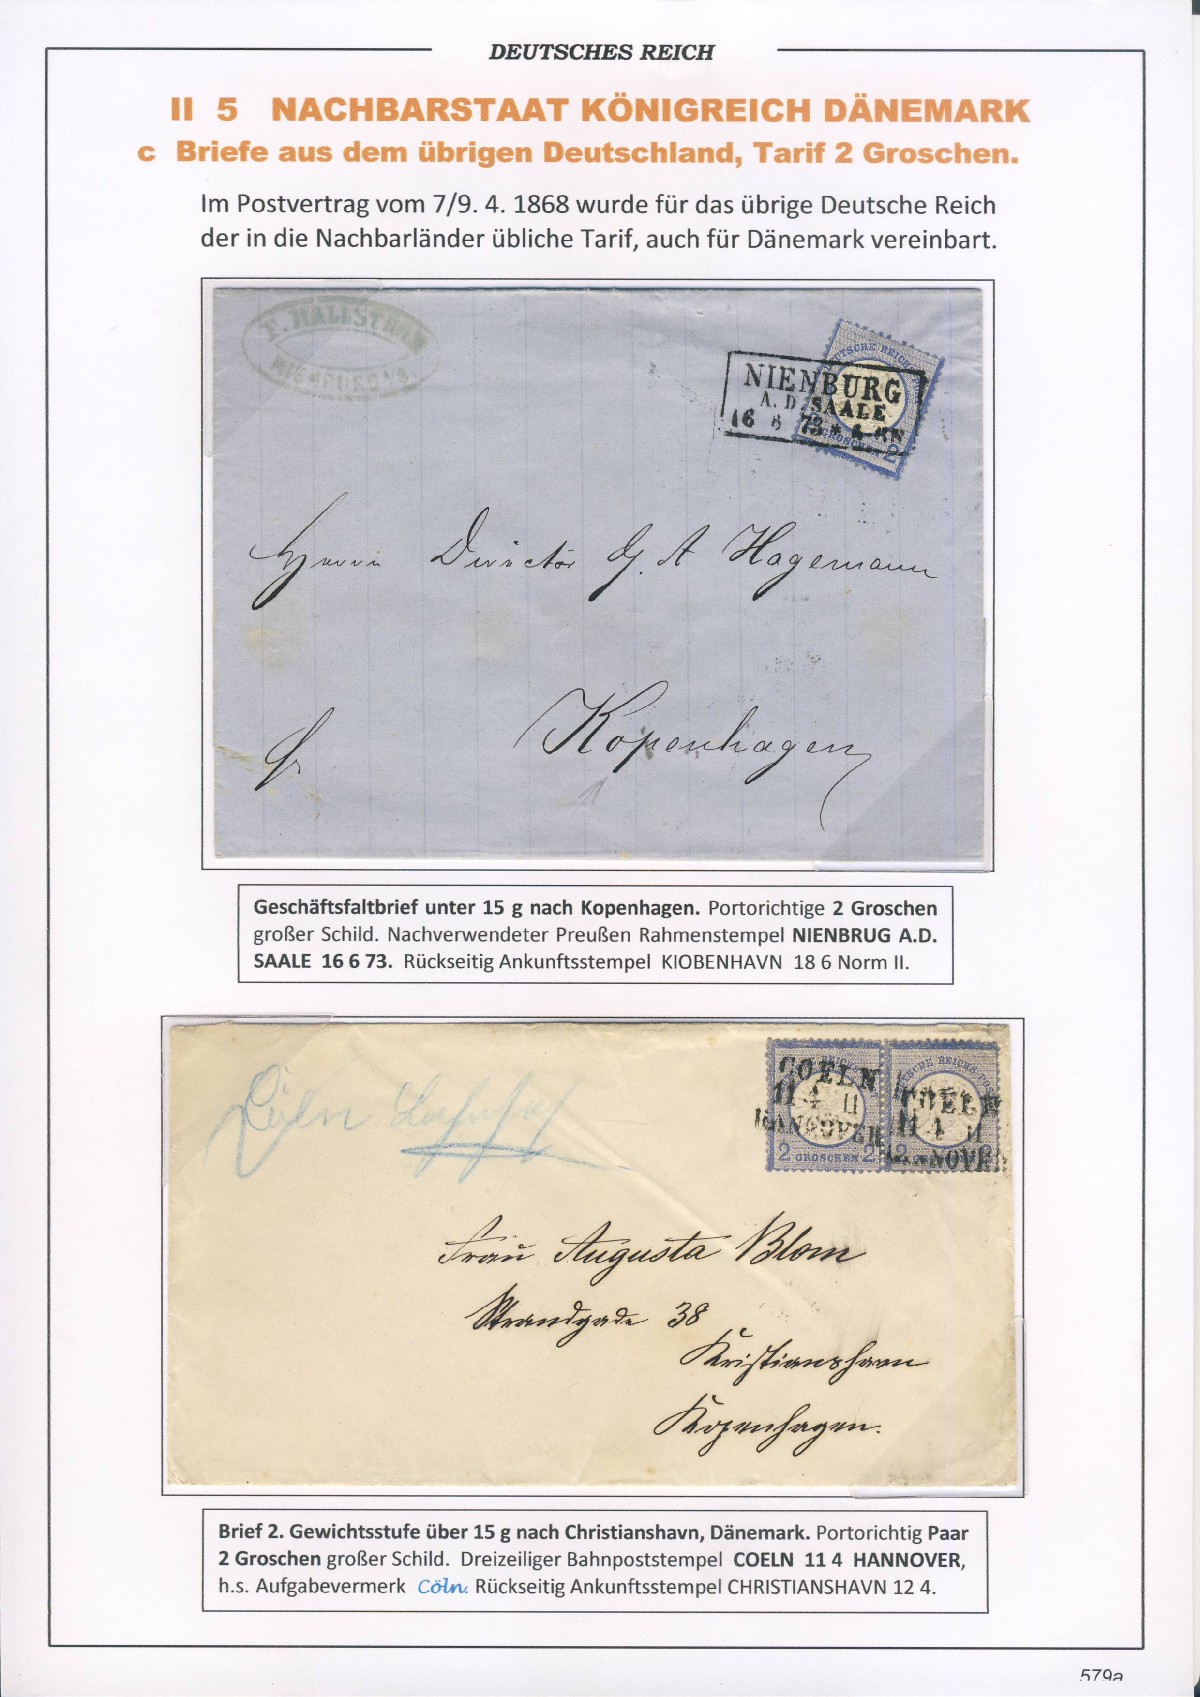 DEUTSCHES REICH
II 5 NACHBARSTAAT KÖNIGREICH DÄNEMARK
c Briefe aus dem übrigen Deutschland, Tarif 2 Groschen.
Im Postvertrag vom 7/9. 4. 1868 wurde für das übrige Deutsche Reich
der in die Nachbarländer übliche Tarif, auch für Dänemark vereinbart.
F. HALLSTRÖM
NIENBURG a/S.
NIENBURG
A. D. SAALE
16 6 73 *
GROSCHEN 2
Herrn Director G. A Hagemann
Kopenhagen
fr
Geschäftsfaltbrief unter 15 g nach Kopenhagen. Portorichtige 2 Groschen
großer Schild. Nachverwendeter Preußen Rahmenstempel NIENBRUG A.D.
SAALE 16 6 73. Rückseitig Ankunftsstempel KIOBENHAVN 18 6 Norm II.
Cöln Bahnhof
COELN
11 4 II
HANNOVER
2 GROSCHEN 2
DEUTSCHE REICHS-POST
COELN
11 4 II
HANNOVER
Frau Augusta Blom
Strandgade 38
Kristianshavn
Kopenhagen.
Brief 2. Gewichtsstufe über 15 g nach Christianshavn, Dänemark. Portorichtig Paar
2 Groschen großer Schild. Dreizeiliger Bahnpoststempel COELN 11 4 HANNOVER,
h.s. Aufgabevermerk Cöln. Rückseitig Ankunftsstempel CHRISTIANSHAVN 12 4.
579a